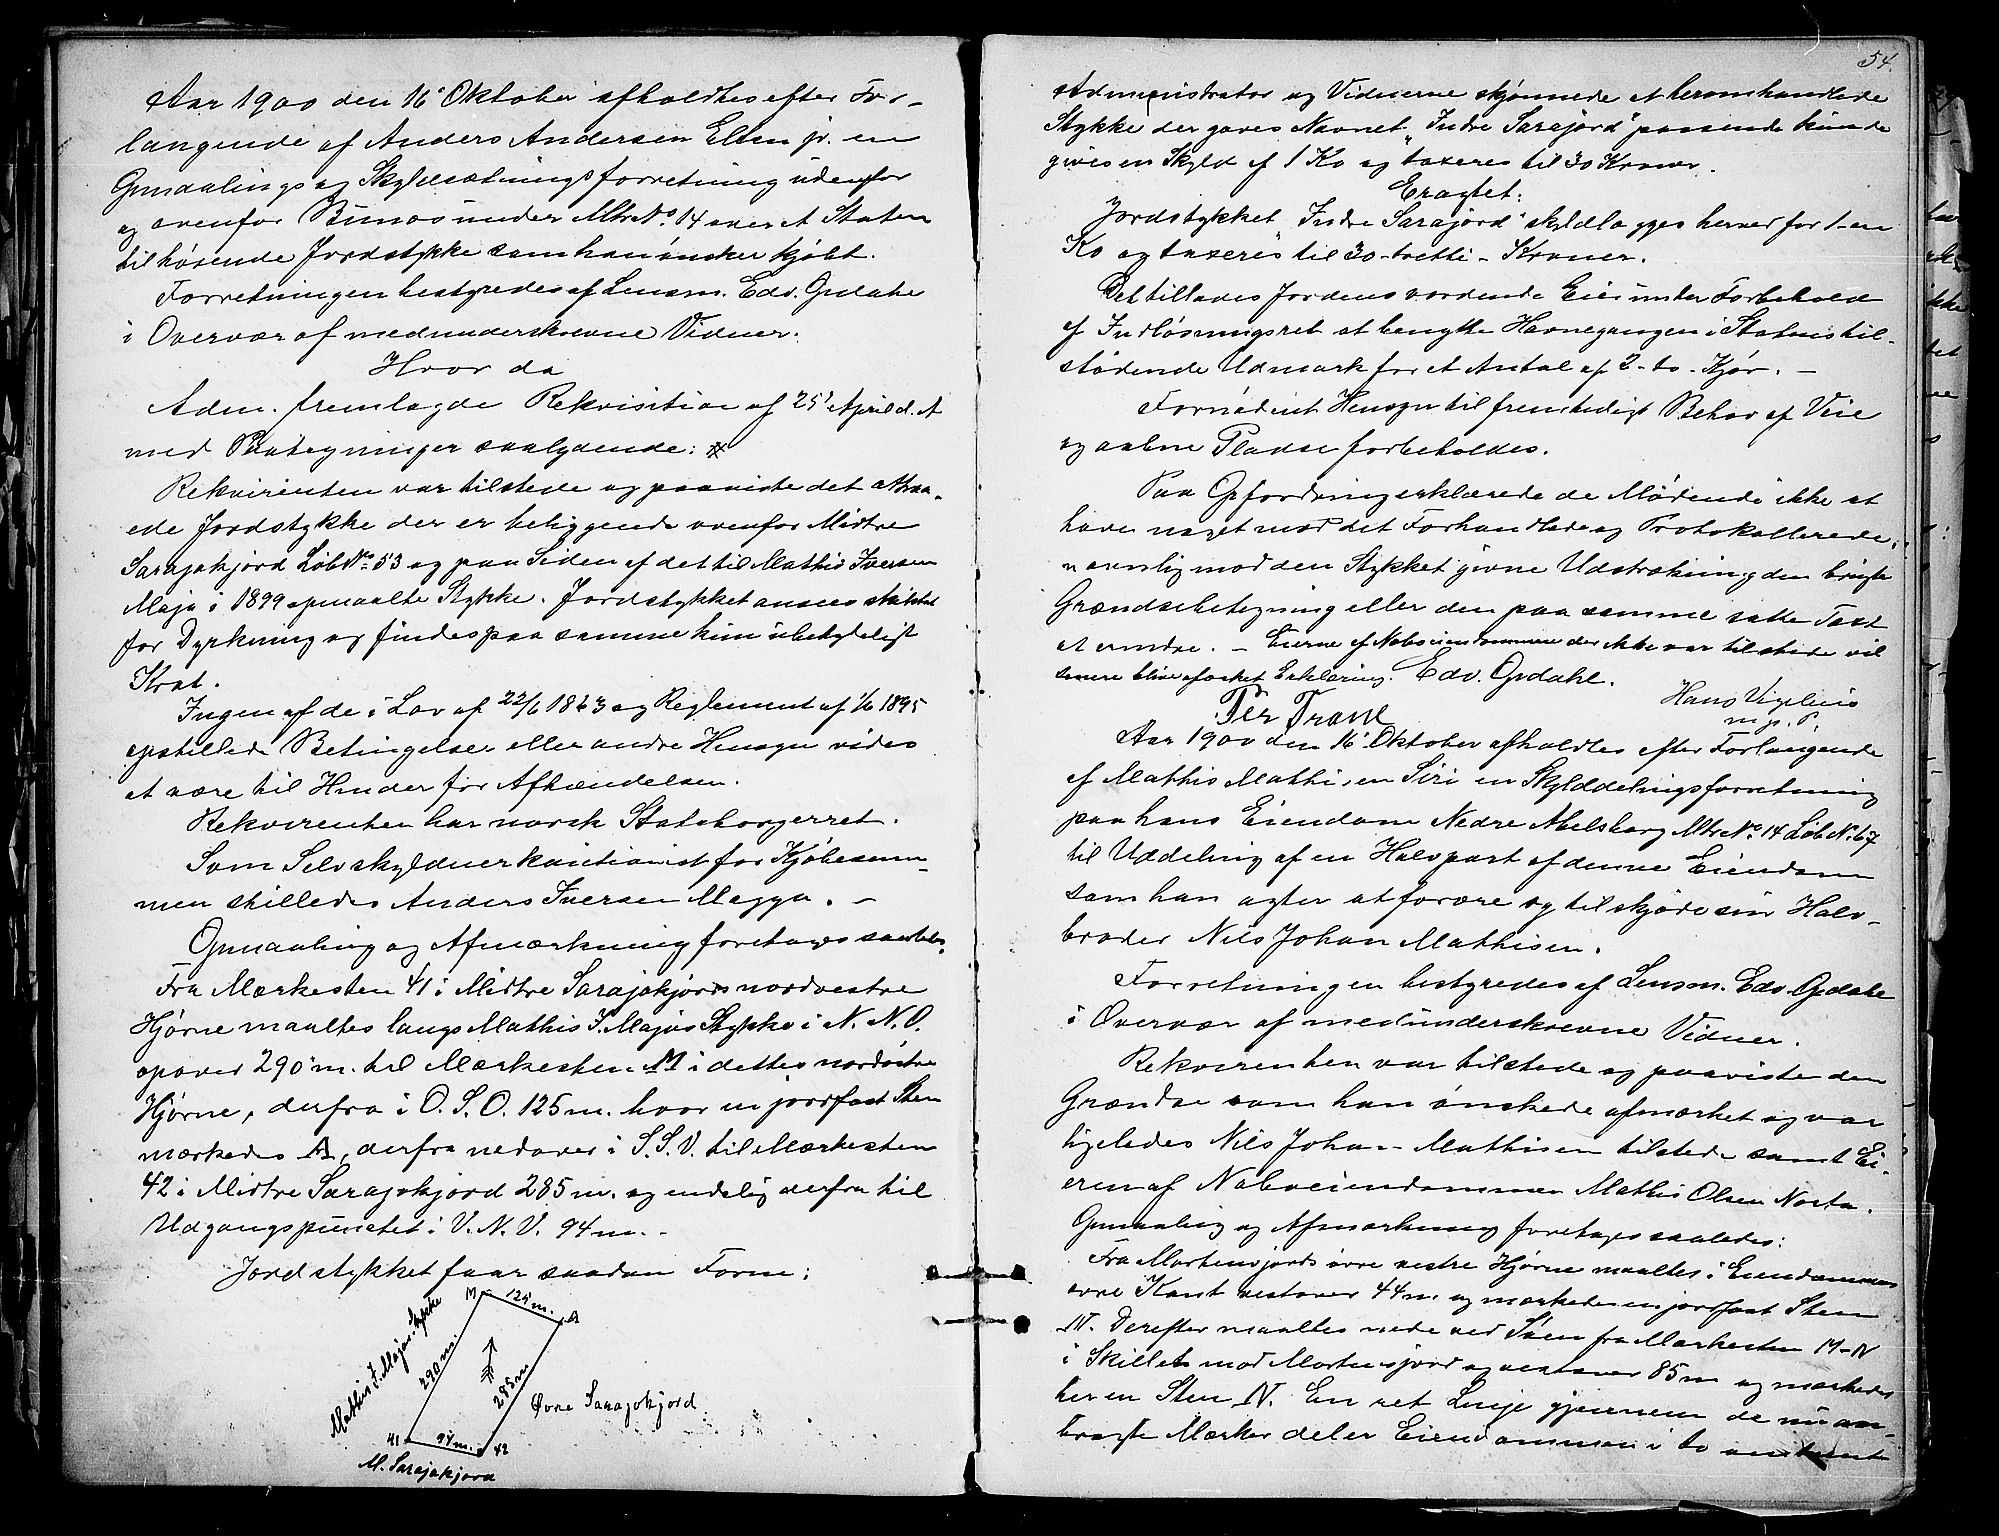 Aar 1900 den 16' Oktober afholdtes efter For-
langende af Anders Andersen Ellen jr. en
Opmaalings og Skyldsætningsforretning udenfor
og ovenfor Bunas under Mtr No. 14 over et Staten
tilhørende Jordstykke som han ønsker kjøbt.
Forretningen bestyredes af Lensm. Edv. Opdahl
i Overvær af medunderskrevne Vidner.
Hvor da
Adm. fremlagde Rekvisition af 25' April d. A
med Paategninger saalydende:
Rekvirenten var tilstede og paaviste det attraa-
ede Jordstykke der er beliggende ovenfor Midtre
Sarajokjord Løb No. 53 og paa Siden af det til Mathis Iversen
Maja i 1899 opmaalte Stykke. Jordstykket ansees skikket
for Dyrkning og findes paa samme kun ubetydeligt
Krat.
Ingen af de i Lov af 22/6 1863 og Reglement af 1/6 1895
opstillede Betingelser eller andre Hensyn vides
at være til Hinder for Afhændelsen.
Rekvirenten har norsk Statsborgerret.
Som Selvskyldnerkautionist for Kjøbesum-
men stilledes Anders Iversen Magga. -
Opmaaling og Afmærkning foretoges saaledes:
Fra Mærkesten 41 i Midtre Sarajokjords nordvestre
Hjørne maaltes langs Mathis I. Majas Stykke i N. N. O.
opover 290 m. til Mærkesten M i dettes nordøstre
Hjørne, derfra i O. S. O. 125 m. hvor en jordfast Sten
mærkedes A, derfra nedover i S. S. V. til Mærkesten
42 i Midtre Sarajokjord 285 m. og endelig derfra til
Udgangspunctet i V. N. V. 94 m. -
Jordstykket faar saadan Form:
M 125 m. A
Mathis I. Majas Stykke
290 m.
285 m
Øvre Sarajokjord.
41 94 m. 42
M. Sarajokjord
54.
Administrator og Vidnerne skjønnede at heromhandlede
Stykke der gaves Navnet "Indre Sarajord" passende kunde
gives en Skyld af 1 Ko og taxeres til 30 Kroner.
Eragtet:
Jordstykket "Indre Sarajord" skyldlægges herved for 1 - en
Ko og taxeres til 30 - tretti - Kroner.
Det tillades Jordens vordende Eier under Forbehold
af Indløsningsret at benytte Havnegangen i Statens til-
stødende Udmark for et Antal af 2 - to - Kjør. -
Fornødent Hensyn til fremtidigt Behov af Veie
og aabne Pladse forbeholdes.
Paa Opfordring erklærede de Mødende ikke at
have noget mod det Forhandlede og Protokollerede,
navnlig mod den Stykket givne Udstrækning, den brugte
Grændsebetegning eller den paa samme satte Taxt
at erindre. - Eierne af Naboeiendommene der ikke var tilstede vil
senere blive afæsket Erklæring. Edv. Opdahl.
Per Trane Hans Vigelius
m. p. P.
Aar 1900 den 16' Oktober afholdtes efter Forlangende
af Mathis Mathisen Siri en Skylddelingsforretning
paa hans Eiendom Nedre Abelsborg Mtr No. 14 Løb No. 67
til Uddeling af en Halvpart af denne Eiendom
som han agter at forære og tilskjøde sin Halv-
broder Nils Johan Mathisen.
Forretningen bestyredes af Lensm. Edv. Opdahl
i Overvær af medunderskrevne Vidner.
Rekvirenten var tilstede og paaviste den
Grændse som han ønskede afmærket og var
ligeledes Nils Johan Mathisen tilstede samt Ei-
eren af Naboeiendommen Mathis Olsen Norta.
Opmaaling og Afmærkning foretoges saaledes:
Fra Mortensjords øvre vestre Hjørne maaltes i Eiendommens
øvre Kant vestover 44 m. og mærkedes en jordfast Sten
N. Derefter maaltes nede ved Søen fra Mærkesten M-N
i Skillet mod Mortensjord og vestover 85 m og mærkedes
her en Sten N. En ret Linje gjennem de nu an-
bragte Mærker deler Eiendommen i to